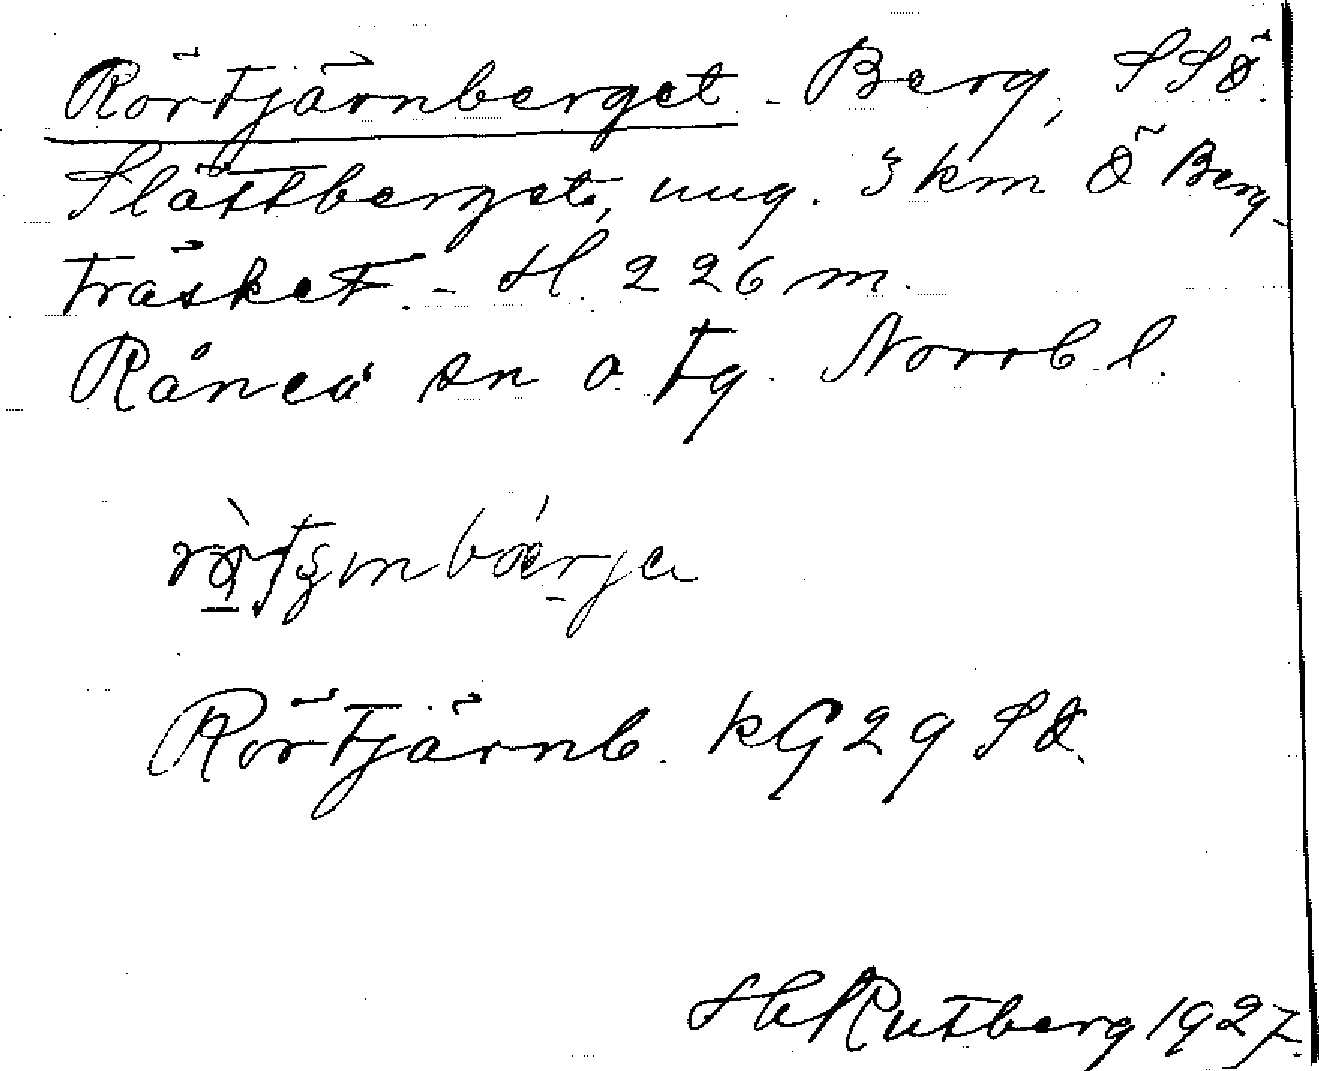 Rörtjärnberget - Berg, SSÖ.
Slättberget, ung. 3 km Ö Berg-
träsket. - H. 226 m.
Råneå sn o. tg. Norrb l.
Rörtjärnb. KG 29 SÖ.
H Rutberg 1927.